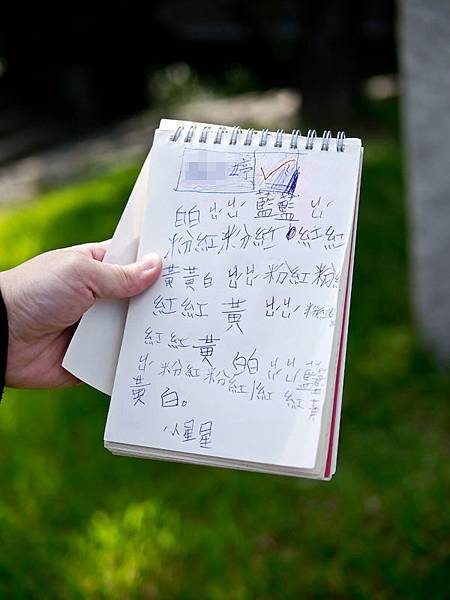 婷
白白 出出 藍藍 出
粉紅粉紅 紅紅
黃黃白 出出粉紅粉紅
紅紅 黃 出出粉紅粉紅
紅紅黃 白白 出出藍藍
出粉紅粉紅紅紅黃
黃白。
小星星